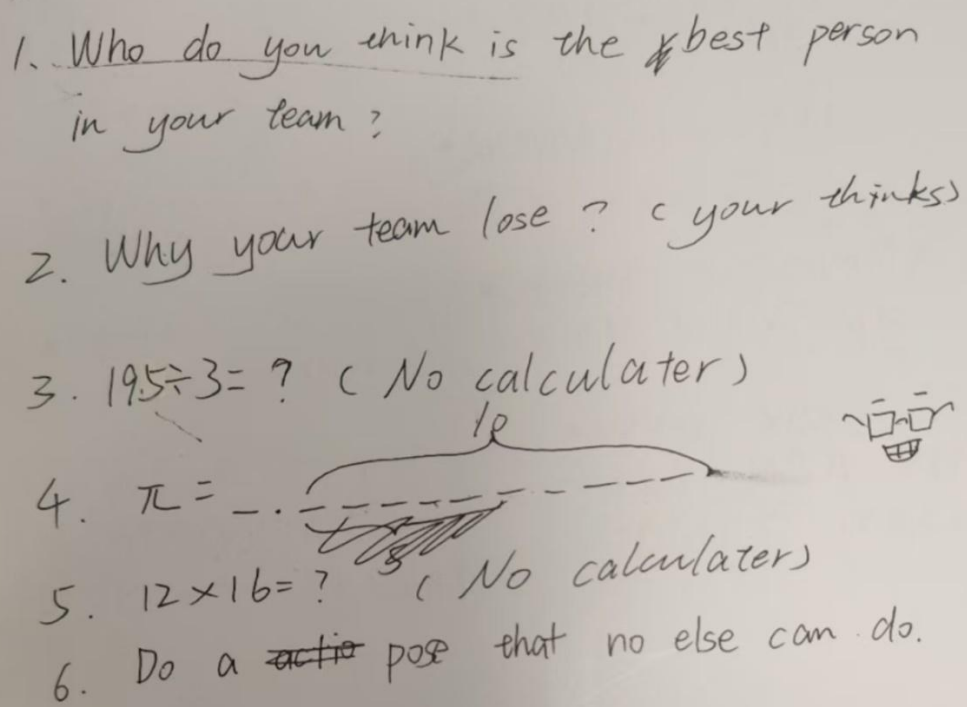 1. Who do you think is the best person
in your team?
2. Why your team lose? (your thinks)
3. 195÷3=? (No calculater)
10
4. π = _._ _ _ _ _ _ _ _ _ _
5. 12×16=? (No calculater)
6. Do a actio pose that no else can do.